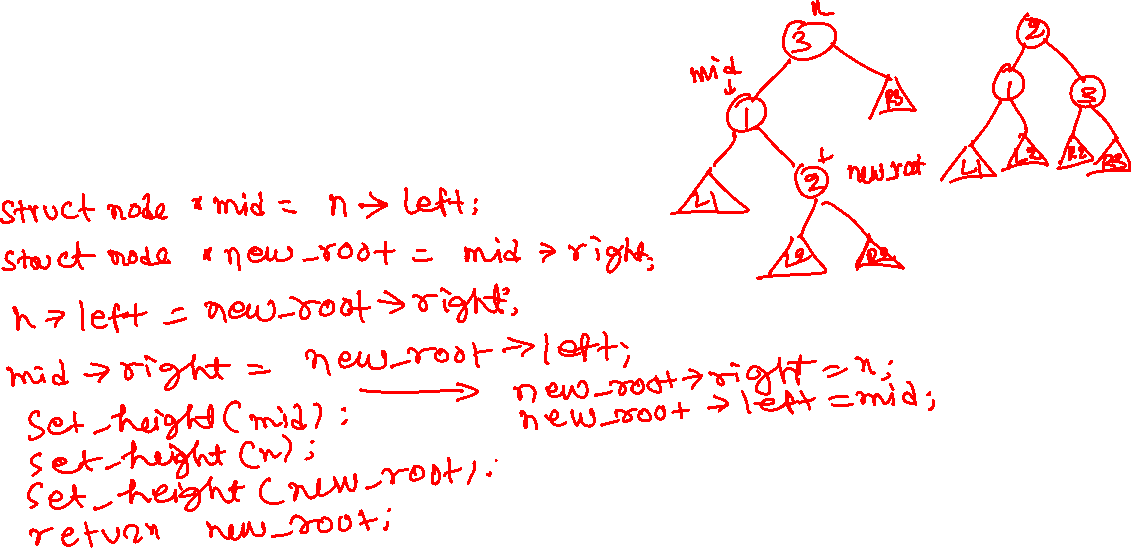 n
3
mid
1
R3
2
new_root
L1
L2
R2
2
1
3
L1
L2
R2
R3
struct node *mid = n→left;
struct node *new_root = mid→right;
n→left = new_root→right;
mid→right = new_root→left;
new_root→right = n;
new_root→left = mid;
set_height(mid);
set_height(n);
set_height(new_root);
return new_root;